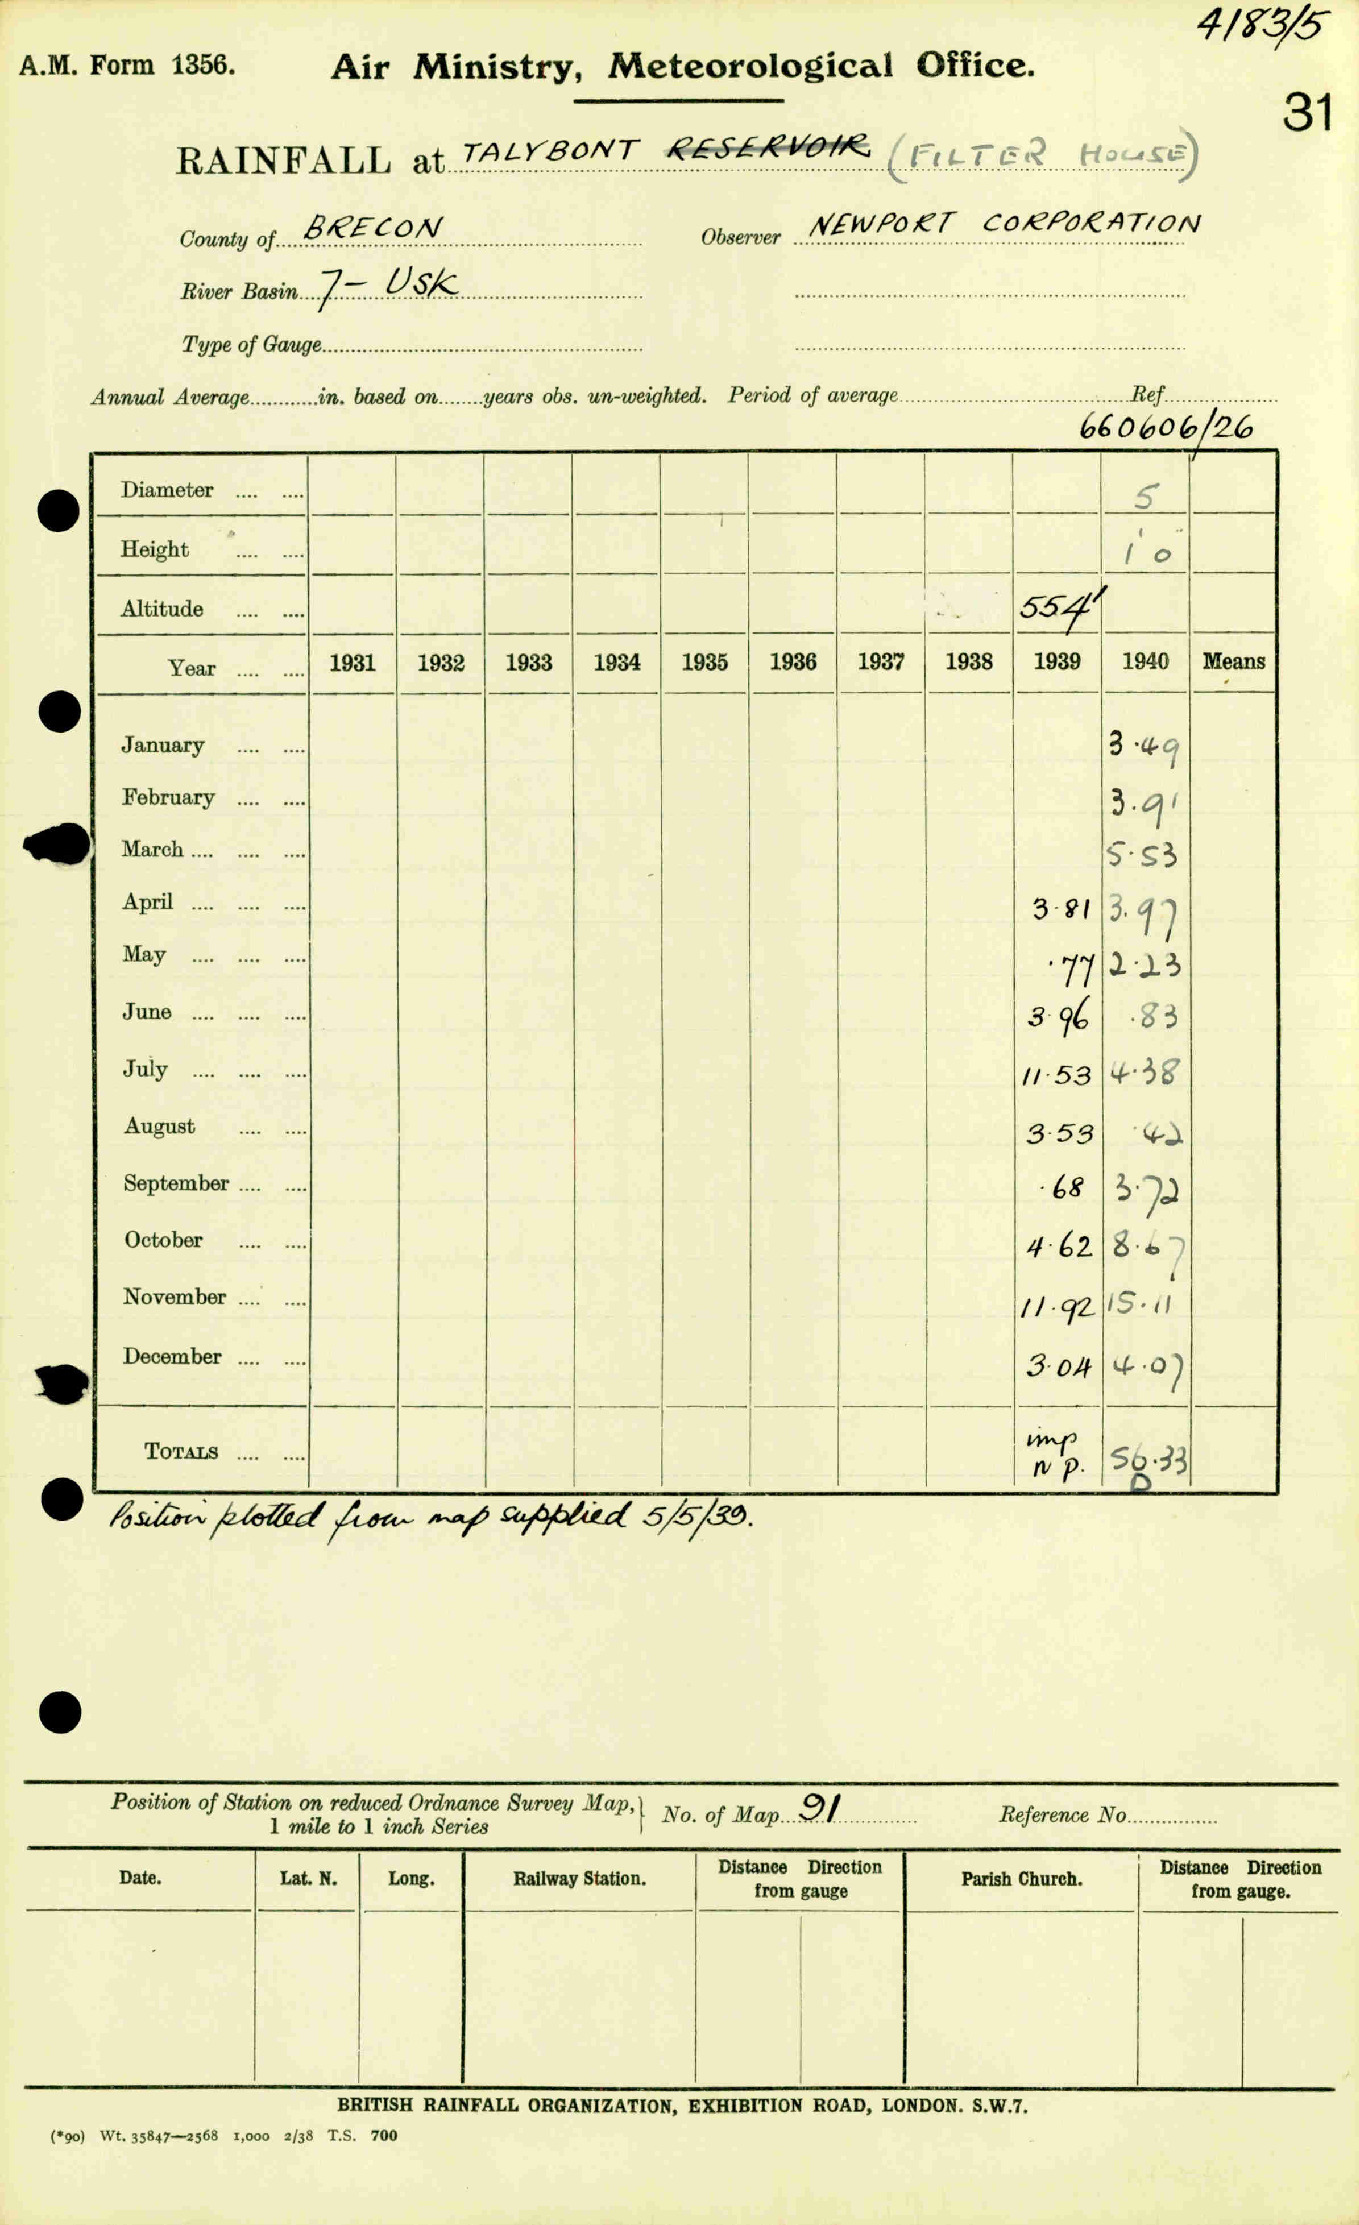 4183/5
A.M. Form 1356. Air Ministry, Meteorological Office.
31
RAINFALL at TALYBONT RESERVOIR (FILTER HOUSE)
County of BRECON Observer NEWPORT CORPORATION
River Basin 7 - USK
Type of Gauge
Annual Average in. based on years obs. un-weighted. Period of average Ref.
660606/26
Diameter 5
Height 1' 0"
Altitude 554'
Year 1931 1932 1933 1934 1935 1936 1937 1938 1939 1940 Means
January 3.49
February 3.91
March 5.53
April 3.81 3.97
May .77 2.23
June 3.96 .83
July 11.53 4.38
August 3.53 .42
September .68 3.72
October 4.62 8.67
November 11.92 15.11
December 3.04 4.07
imp
TOTALS n p. 56.33
D
Position plotted from map supplied 5/5/39.
Position of Station on reduced Ordnance Survey Map, } No. of Map 91 Reference No.
1 mile to 1 inch Series
Date. Lat. N. Long. Railway Station. Distance Direction from gauge Parish Church. Distance Direction from gauge.
BRITISH RAINFALL ORGANIZATION, EXHIBITION ROAD, LONDON. S.W.7.
(*90) Wt. 35847—2568 1,000 2/38 T.S. 700